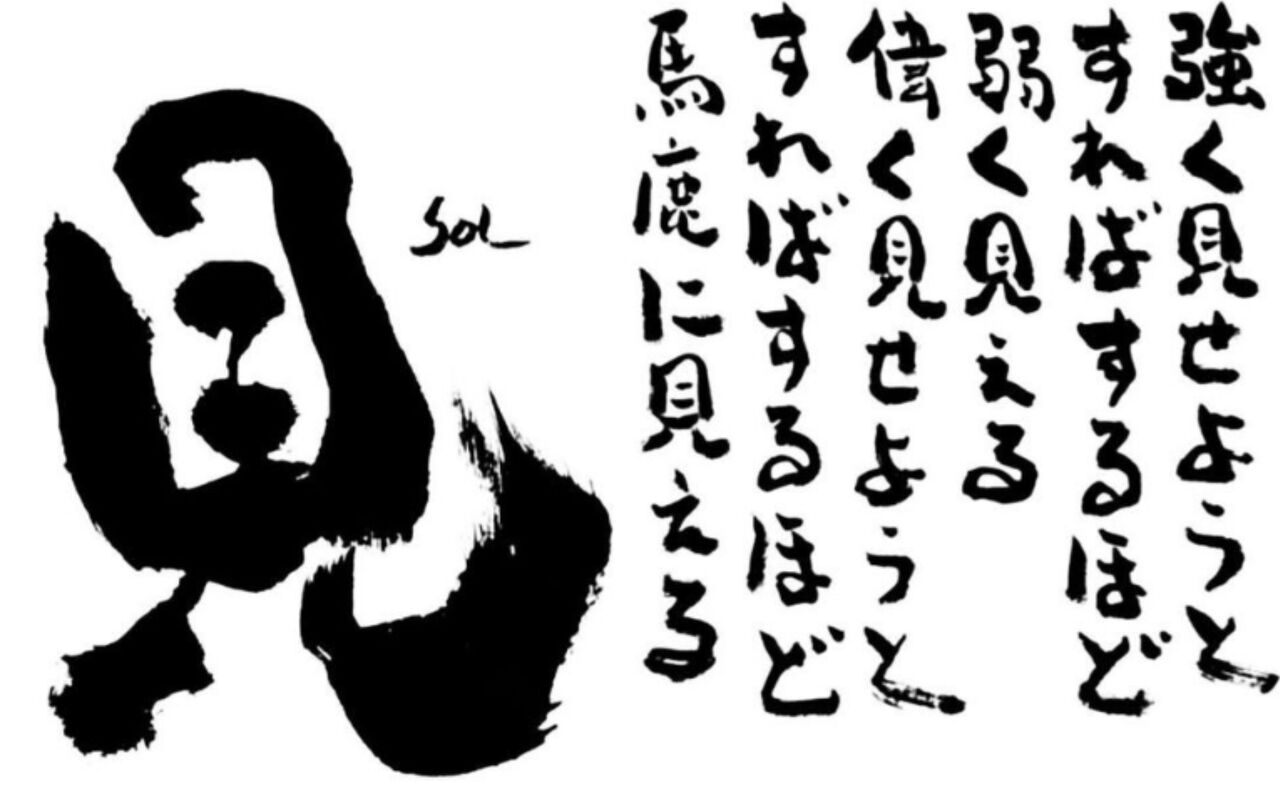 強く見せようと
すればするほど
弱く見える
偉く見せようと
すればするほど
馬鹿に見える
SOL
見